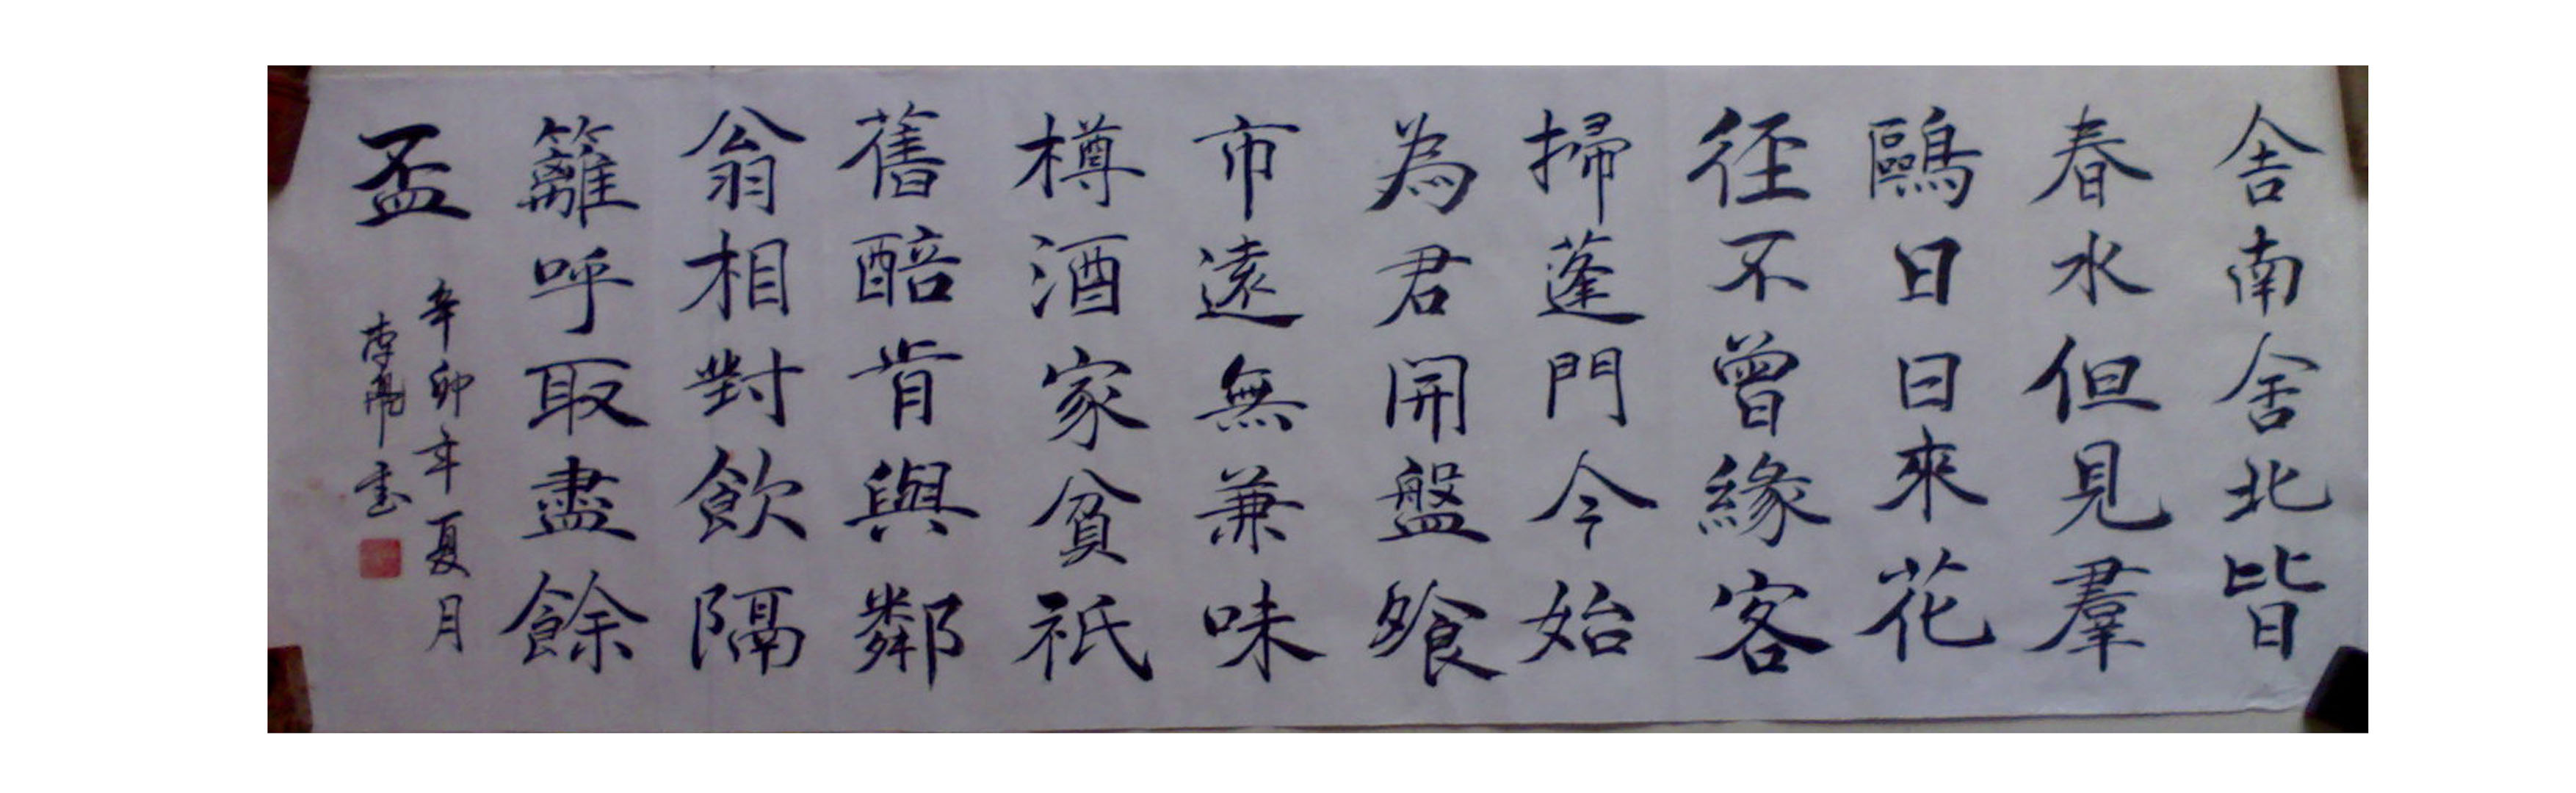 舍南舍北皆
春水但見羣
鷗日日來花
径不曾緣客
掃蓬門今始
為君開盤飧
市遠無兼味
樽酒家貧祇
舊醅肯與鄰
翁相對飲隔
籬呼取盡餘
盃
辛卯年夏月
李書